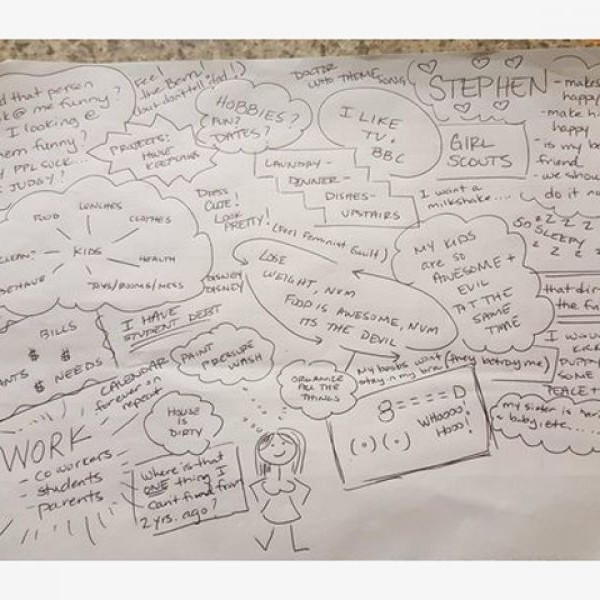 d that person
k @ me funny?
I looking @
em funny?
PPL SUCK...
JUDGY?
Feel
the Bern!
(but don't tell dad!)
PROJECTS:
HOUSE
KEEPING
HOBBIES?
FUN?
DATES?
DOCTOR
WHO THEME
SONG
I LIKE
TV.
BBC
STEPHEN
- makes
happy
- make h
happy
- is my be
friend
- we shou
do it
GIRL
SCOUTS
LAUNDRY -
DINNER -
DISHES -
UPSTAIRS
I want a
milkshake....
SO SLEEPY
z z z z
z z z
DRESS
CUTE!
LOOK
PRETTY!
(Feel Feminist Guilt)
FOOD
LUNCHES
CLOTHES
CLEAN
KIDS
HEALTH
BEHAVE
TOYS/ROOMS/MESS
DISNEY
DISNEY
LOSE
WEIGHT, NUM
FOOD IS AWESOME, NUM
ITS THE DEVIL
MY KIDS
are so
AWESOME +
EVIL
AT THE
SAME
TIME
that dir
the fu
BILLS
$ $
$ NEEDS
ANTS
I HAVE
STUDENT DEBT
CALENDAR
forever on
repeat
PAINT
PRESSURE
WASH
ORGANIZE
ALL THE
THINGS
My boobs won't
stay in my bra!
(they betray me)
8====D
WHOOOO!
HOOO!
(.)(.)
I WOU
KICK
PUPPY
SOME
PEACE +
my sister is
baby, etc....
HOUSE
IS
DIRTY
WORK
- coworkers -
- students
- parents
Where is that
ONE thing I
can't find from
2 yrs. ago?